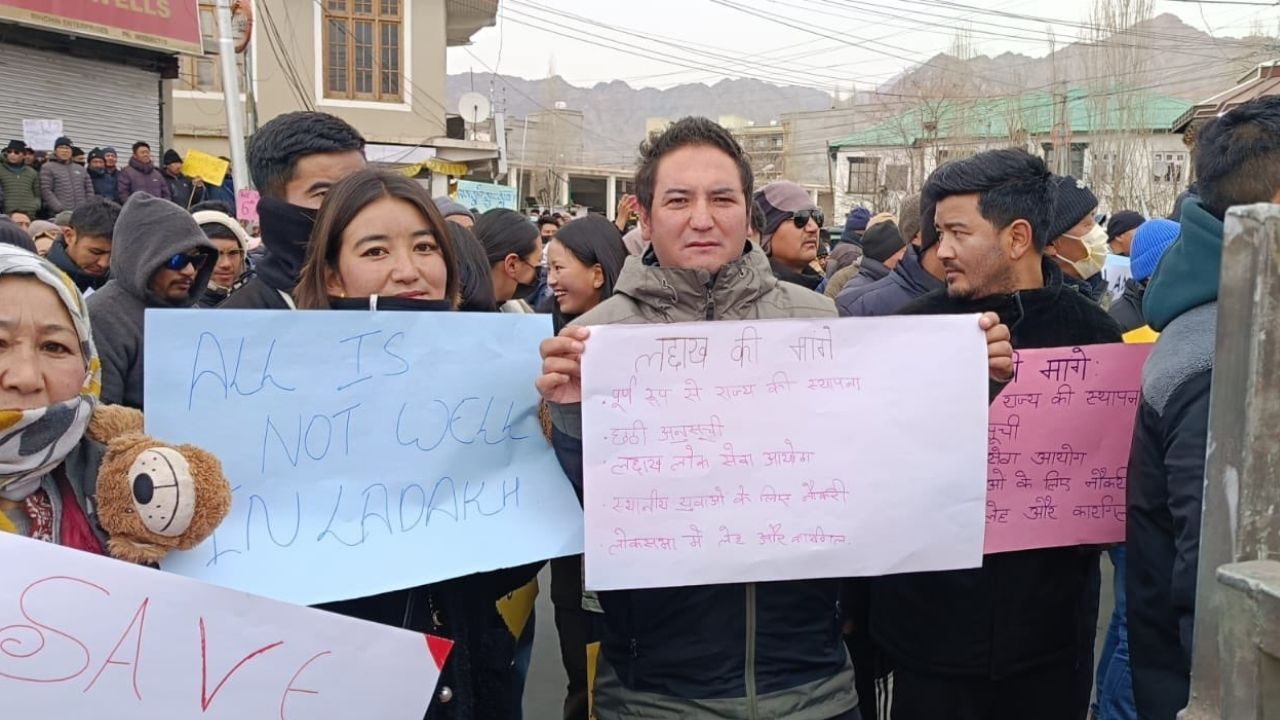 WELLS
ALL IS
NOT WELL
IN LADAKH
SAVE
लद्दाख की मांगे
· पूर्ण रूप से राज्य की स्थापना
· छठी अनुसूची
· लद्दाख लोक सेवा आयोग
· स्थानीय युवाओ के लिए नौकरी
· लोकसभा में लेह और कारगिल.
मांगे:
राज्य की स्थापन
सेवा आयोग
ओ के लिए नौकरी
लेह और कारगिल